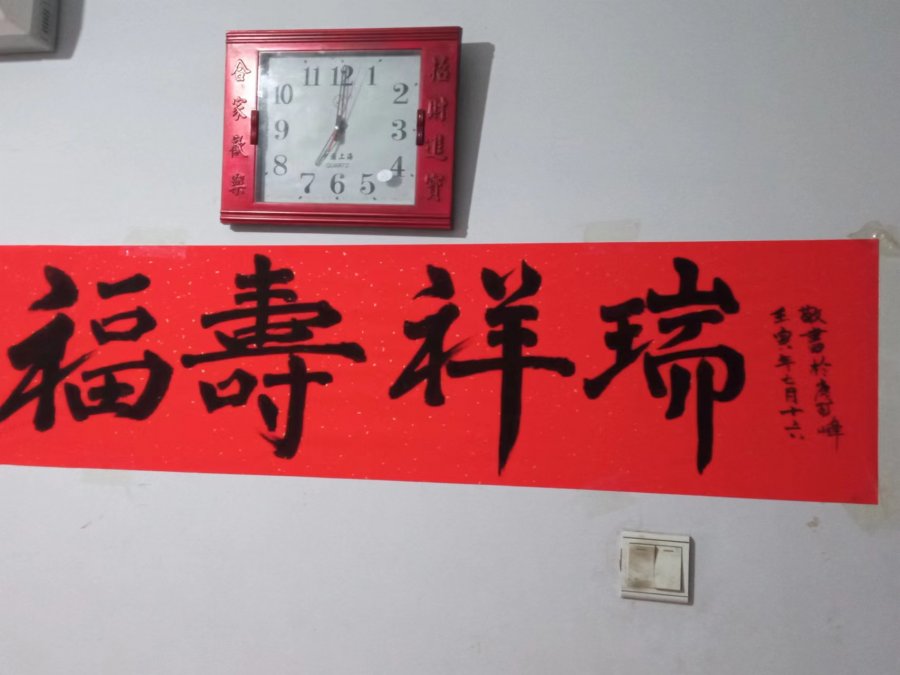 合家歡樂
招財進寶
11 12 1
10 2
9 3
8 4
7 6 5
中国上海
QUARTZ
福壽祥瑞
敬書於
壬寅年七月十六